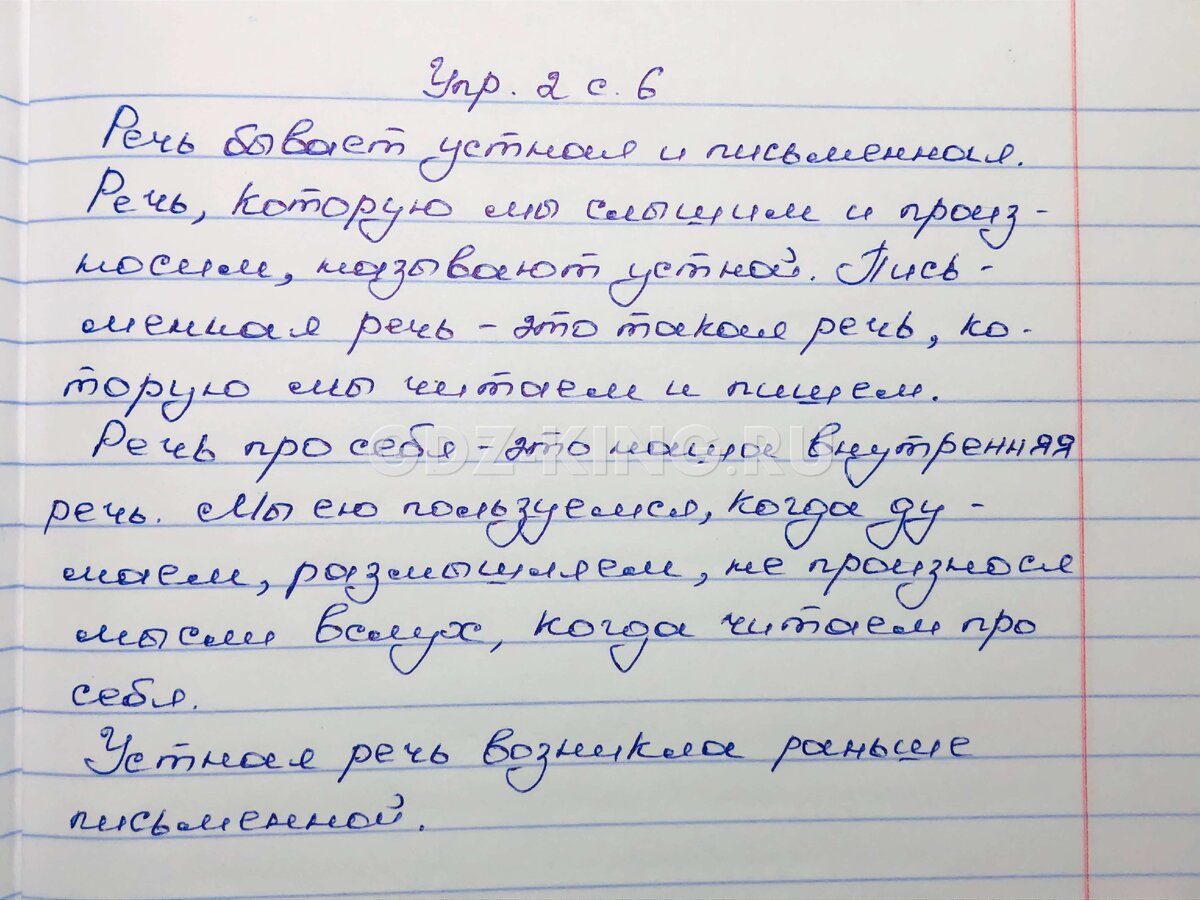 Упр. 2 с. 6
Речь бывает устная и письменная.
Речь, которую мы слышим и произ-
носим, называют устной. Пись-
менная речь - это такая речь, ко-
торую мы читаем и пишем.
Речь про себя - это наша внутренняя
GDZ-KING.RU
речь. Мы ею пользуемся, когда ду-
маем, размышляем, не произнося
мысли вслух, когда читаем про
себя.
Устная речь возникла раньше
письменной.